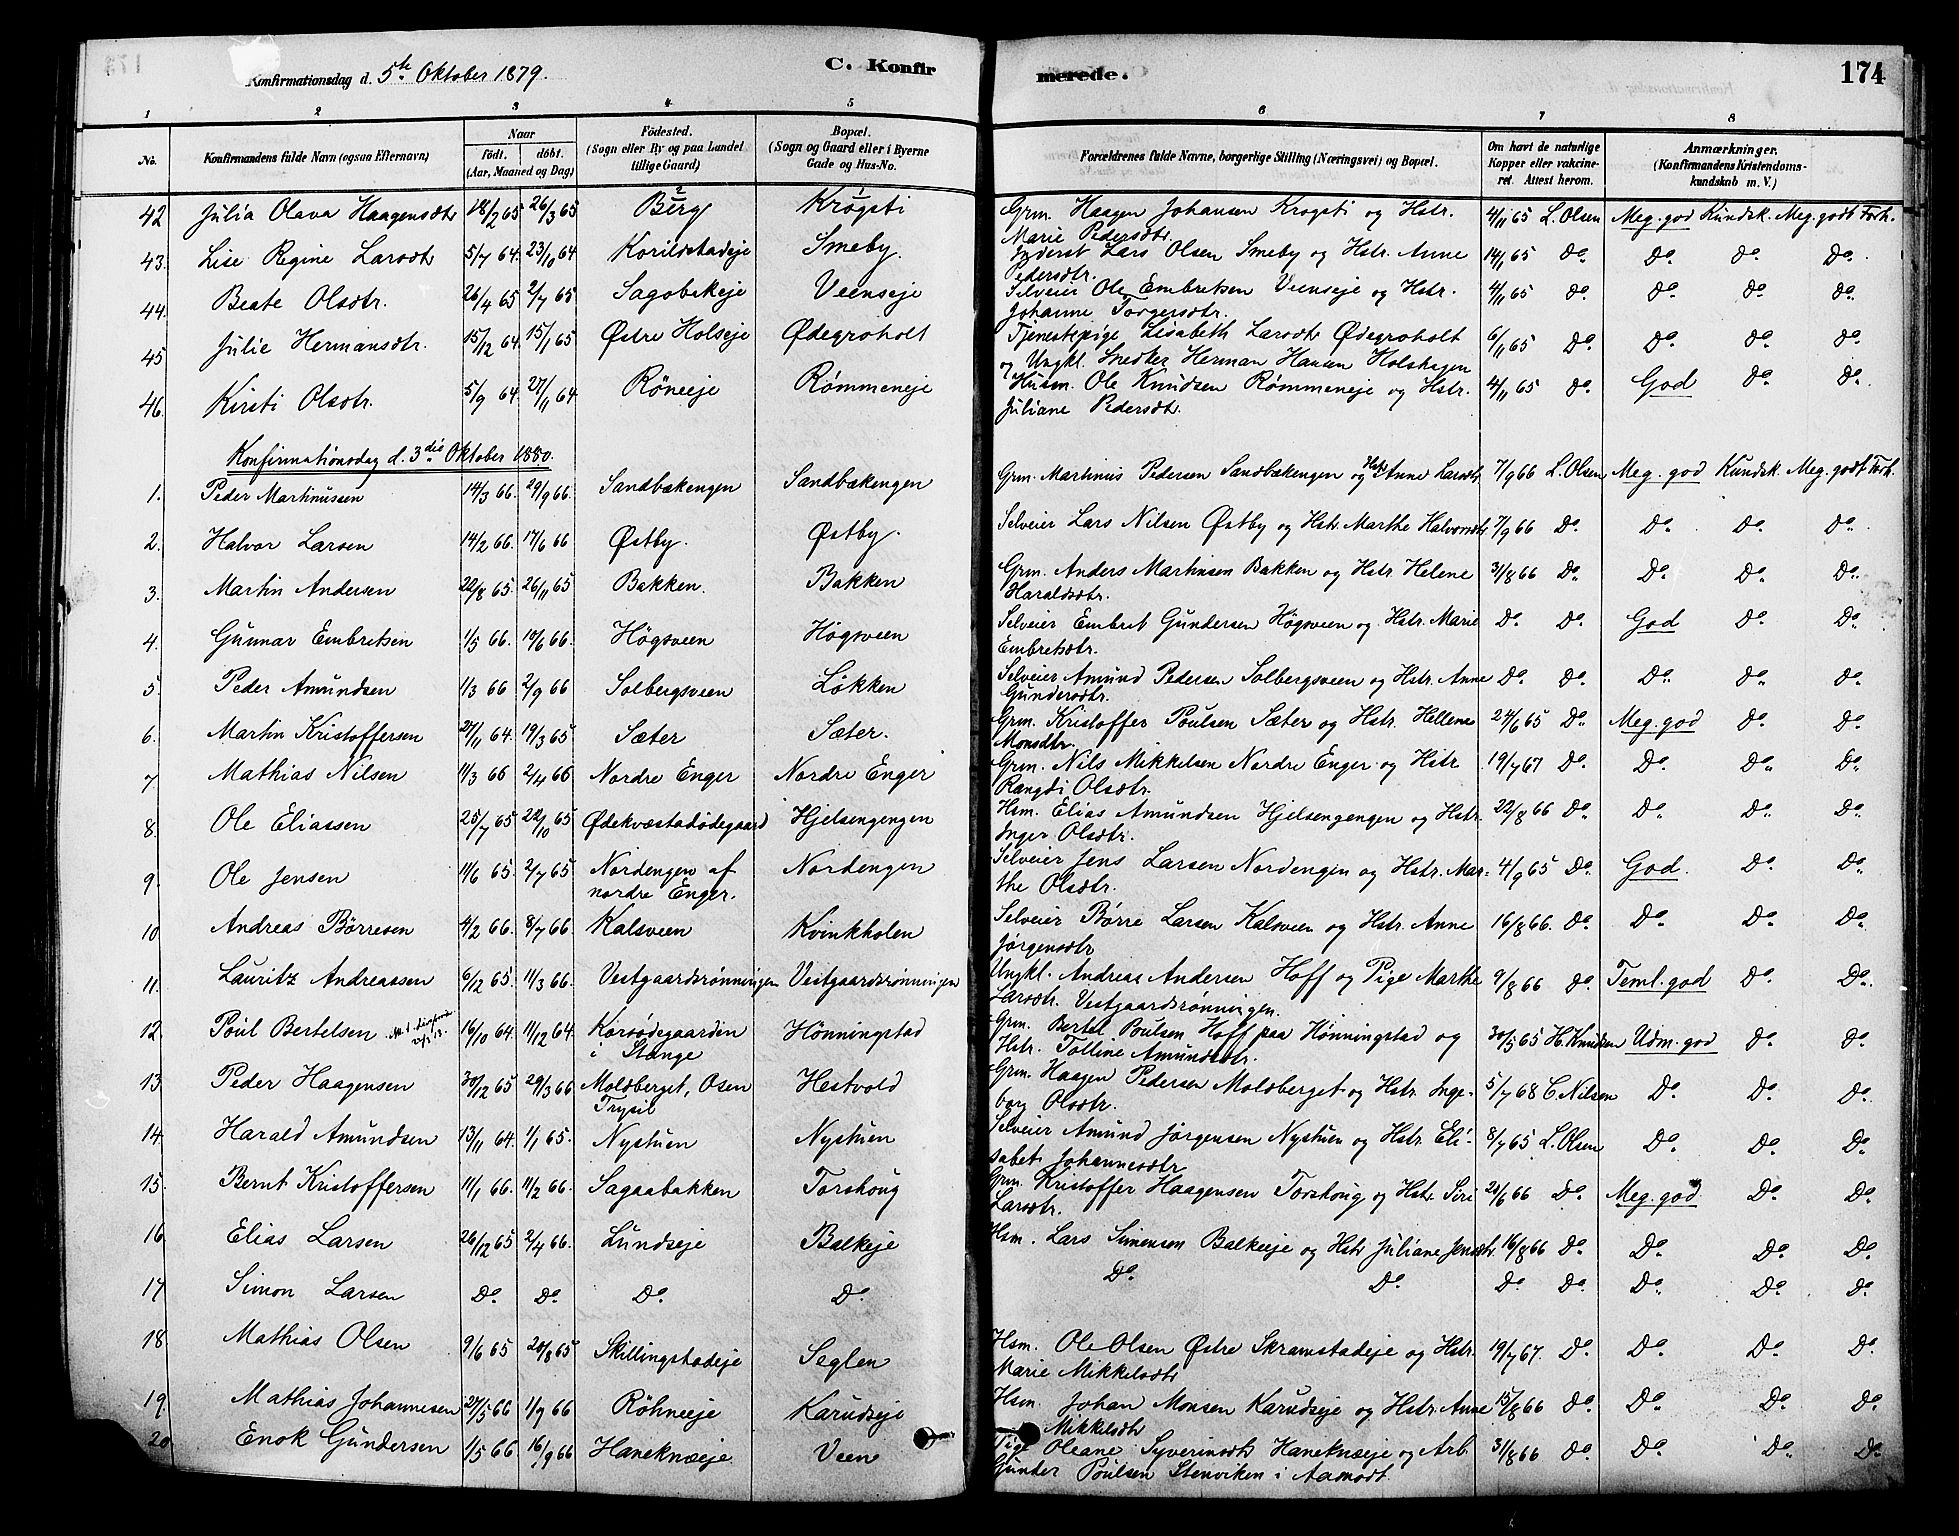 Konfirmationsdag d. 5te Oktober 1879. C. Konfirmerede. 174
1 2 3 4 5 6 7 8
No. Konfirmandens fulde Navn (ogsaa Efternavn) Naar født. døbt. (Aar, Maaned og Dag) Fødested. (Sogn eller By og paa Landet tillige Gaard) Bopæl. (Sogn og Gaard eller i Byerne Gade og Hus-No. Forældrenes fulde Navne, borgerlige Stilling (Næringsvei) og Bopæl. Om havt de naturlige Kopper eller vakcineret. Attest herom. Anmærkninger, (Konfirmandens Kristendomskundskab m. V.)
42 Julia Olava Haagensdtr 18/2 65 26/3 65 Berg Krøgsti Grm. Haagen Johansen Krogsti og Hstr. Marie Pedersdtr. 4/11 65 L. Olsen Meg. god Kundsk. Meg. godt Forh.
43. Lise Regine Larsdtr 5/7 64. 23/10 64 Korildstadeje Smeby. Inderst Lars Olsen Smeby og Hstr. Anne Pedersdtr. 14/11 65 Do. Do. Do. Do.
44. Beate Olsdtr. 26/4 65 2/7 65 Sagobakeje Veenseje Selveier Ole Embretsen Veenseje og Hstr. Johanne Torgersdtr. 4/11 65 Do. Do. Do. Do.
45 Julie Hermansdtr. 15/12 64. 15/1 65 Østre Holseje Ødegroholt Tjenestepige Lisabeth Larsdtr Ødegroholt og Ungkl. Snedker Herman Hansen Holshagen 6/11 65 Do. Do. Do. Do.
46. Kirsti Olsdtr. 5/9 64. 27/11 64. Röneeje Rømmeneje Husm. Ole Knudsen Rømmeneje og Hstr. Juliane Pedersdtr. 4/11 65 Do. God Do. Do.
Konfirmationsdag d. 3die Oktober 1880.
1. Peder Martinussen 14/3 66. 29/9 66. Sandbækengen Sandbækengen Grm. Martinus Pedersen Sandbækengen og Hstr Anne Larsdtr 7/9 66 L. Olsen Meg. god Kundsk. Meg. godt Forh.
2. Halvor Larsen 14/2 66. 17/6 66 Østby. Østby. Selveier Lars Nilsen Østby og Hstr. Marthe Halvorsdtr. 7/9 66 Do. Do. Do. Do.
3. Martin Andersen 22/8 65. 26/11 65 Bakken. Bakken Grm. Anders Martinsen Bakken og Hstr. Helene Haraldsdtr. 31/8 66 Do. Do. Do. Do.
4. Gunnar Embretsen 1/5 66. 10/6 66. Högsveen Högsveen Selveier Embret Gundersen Högsveen og Hstr. Marie Embretsdtr. Do. Do. God Do. Do.
5 Peder Amundsen 1/3 66 2/9 66 Solbergsveen Løkken Selveier Amund Pedersen Solbergsveen og Hstr. Anne Gundersdtr. Do. Do. Do. Do. Do.
6. Martin Kristoffersen 27/11 64. 19/3 65. Sæter Sæter. Grm. Kristoffer Poulsen Sæter og Hstr. Hellene Monsdtr. 24/6 65 Do. Meg. god Do. Do.
7 Mathias Nilsen 11/3 66 2/4 66 Nordre Enger Nordre Enger Grm. Nils Mikkelsen Nordre Enger og Hstr Rangdi Olsdtr. 19/7 67 Do. Do. Do. Do.
8. Ole Eliassen 25/7 65 22/10 65 Ødekvæstadødegaard Hjelsengengen Hsm. Elias Amundsen Hjelsengengen og Hstr. Inger Olsdtr. 22/8 66 Do. Do. Do. Do.
9. Ole Jensen 11/6 65. 2/7 65 Nordengen af nordre Enger. Nordengen Selveier Jens Larsen Nordengen og Hstr. Marthe Olsdtr. 4/9 65 Do. God. Do. Do.
10 Andreas Börresen 4/2 66. 8/7 66. Kalsveen Kvinkholen Selveier Børre Larsen Kalsveen og Hstr. Anne Jørgensdtr 16/8 66. Do. Do. Do. Do.
11. Lauritz Andreassen 6/12 65. 11/3 66. Vestgaardsrønningen Vestgaardsrønningen Ungkl. Andreas Andersen Hoff og Pige Marthe Larsdtr. Vestgaardsrønningen. 9/8 66 Do. Teml. god Do. Do.
12. Poul Bertelsen 16/10 64. 11/12 64. Korsødegaarden i Stange Hönningstad Grm. Bertel Poulsen Hoff paa Hönningstad og Hstr. Tolline Amundsdtr. 30/5 65 H. Knudsen Udm. god Do. Do.
13. Peder Haagensen 30/12 65 29/3 66 Moldberget, Osen Trysil Hestvold Grm. Haagen Pedersen Moldberget og Hstr. Ingeborg Olsdtr. 5/7 68 C. Nilsen Do. Do. Do.
14. Harald Amundsen 13/11 64. 1/1 65. Nystuen Nystuen Selveier Amund Jørgensen Nystuen og Hstr. Elisabet Johannesdtr 8/7 65 L. Olsen Do. Do. Do.
15. Bernt Kristoffersen 11/1 66. 11/2 66. Sagaabakken Torshoug Grm. Kristoffer Haagensen Torshoug og Hstr. Siri Larsdtr. 22/6 66 Do. Meg. god. Do. Do.
16. Elias Larsen 26/12 65 2/4 66. Lundseje Balkeje Hsm. Lars Simensen Balkeeje og Hstr Juliane Jensdtr. 16/8 66 Do. Do. Do. Do.
17. Simon Larsen Do. Do. Do. Do. Do. Do. Do. Do. Do. Do. Do.
18 Mathias Olsen 9/6 65 20/8 65 Skillingstadeje Seglen Hsm. Ole Olsen Østre Skramstadeje og Hstr. Marie Mikkelsdtr 19/7 67. Do. Do. Do. Do.
19. Mathias Johannesen 27/5 66 1/7 66 Röhneeje Karudseje Hsm. Johan Monsen Karudseje og Hstr. Anne Mikkelsdtr 15/8 66 Do. Do. Do. Do.
20 Enok Gundersen 1/5 66 16/9 66 Haneknæeje Veen Pige Oleane Syverinsdtr Haneknæeje og Arb. Gunder Poulsen Stenviken i Aamodt. 31/8 66 Do. Do. Do. Do.